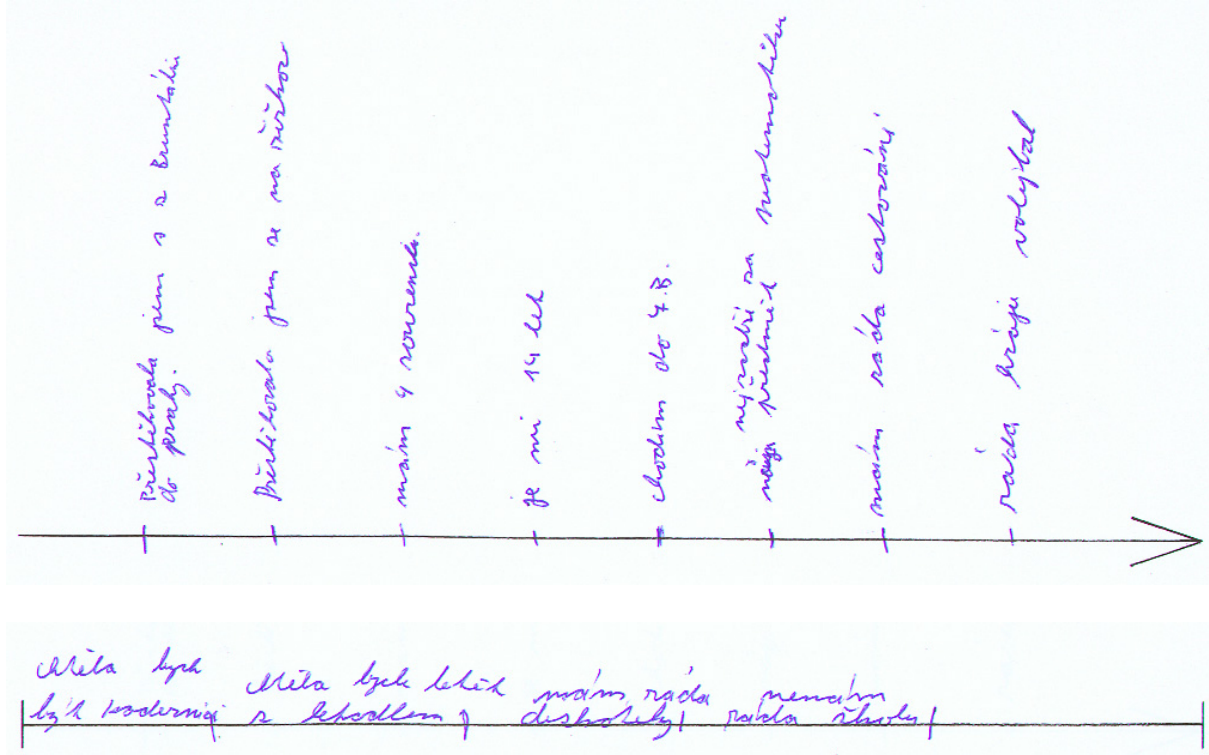 Přestěhovala jsem s z Bruntálu
do prahy.
Přestěhovala jsem se na Žižkov
mám 4 sourence.
je mi 14 let
chodim do 7.B.
nejradši za
můj předmět matematiku
mám ráda cestování
ráda hraju volejbal
chtěla bych
být kadernicí
chtěla bych letět
s letadlem
mám ráda
diskotéky
nemám
ráda školu